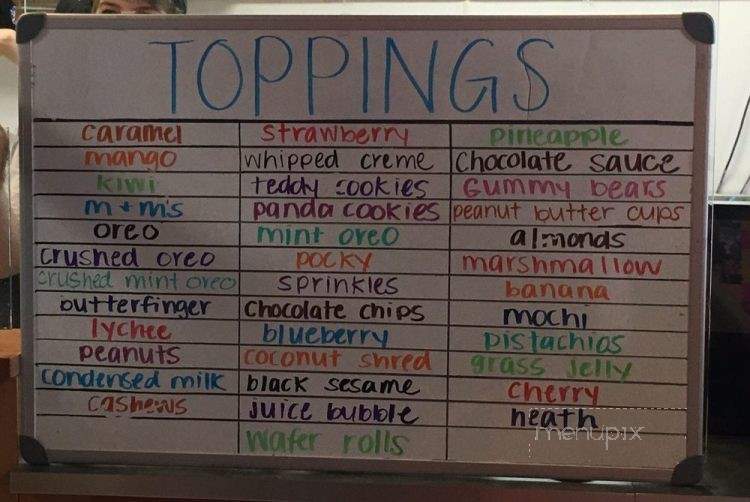 TOPPINGS
caramel strawberry pineapple
mango whipped creme chocolate sauce
kiwi teddy cookies gummy bears
m+m's panda cookies peanut butter cups
oreo mint oreo almonds
crushed oreo pocky marshmallow
crushed mint oreo sprinkles banana
butterfinger chocolate chips mochi
lychee blueberry pistachios
peanuts coconut shred grass jelly
condensed milk black sesame cherry
cashews juice bubble heath
wafer rolls
menupix